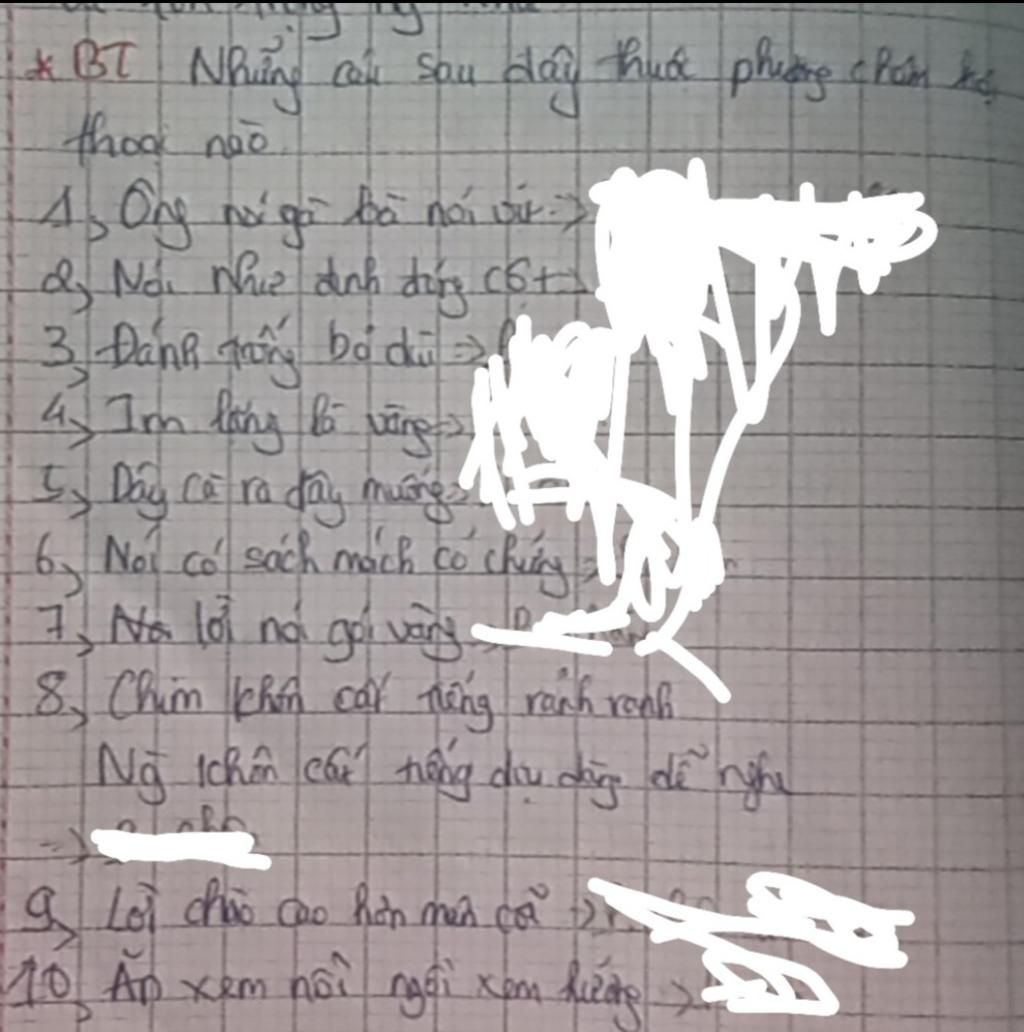 * BT Những câu sau đây thuộc phương châm hội
thoại nào
1, Ông nói gà bà nói vịt ->
2, Nói như đinh đóng cột ->
3, Đánh trống bỏ dùi =>
4, Im lặng là vàng =>
5, Dây cà ra dây muống =>
6, Nói có sách mách có chứng =>
7, lời nói gói vàng
8, Chim khôn cất tiếng rảnh ranh
Ng khôn cất tiếng dịu dàng dễ nghe
=>
9, Lời chào cao hơn mâm cỗ =>
10, Ăn xem nồi ngồi xem hướng =>